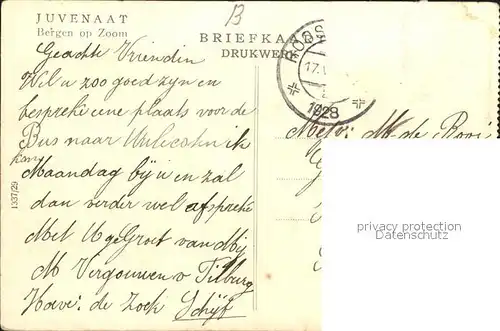 JUVENAAT
Bergen op Zoom
B
BRIEFKAA
DRUKWERK
ROOS
17.V
1928
Geachte Vriendin
Wil u zoo goed zyn en
bespreke eene plaats voor de
Bus naar ik
kom
Maandag by u en zal
dan verder wel afspreke
Met U gegroet van Mij
M Vergouwen v Tilburg
Hoeve: de Zoek Schijf
Mevr: M de Rooi
1337/29
privacy protection
Datenschutz